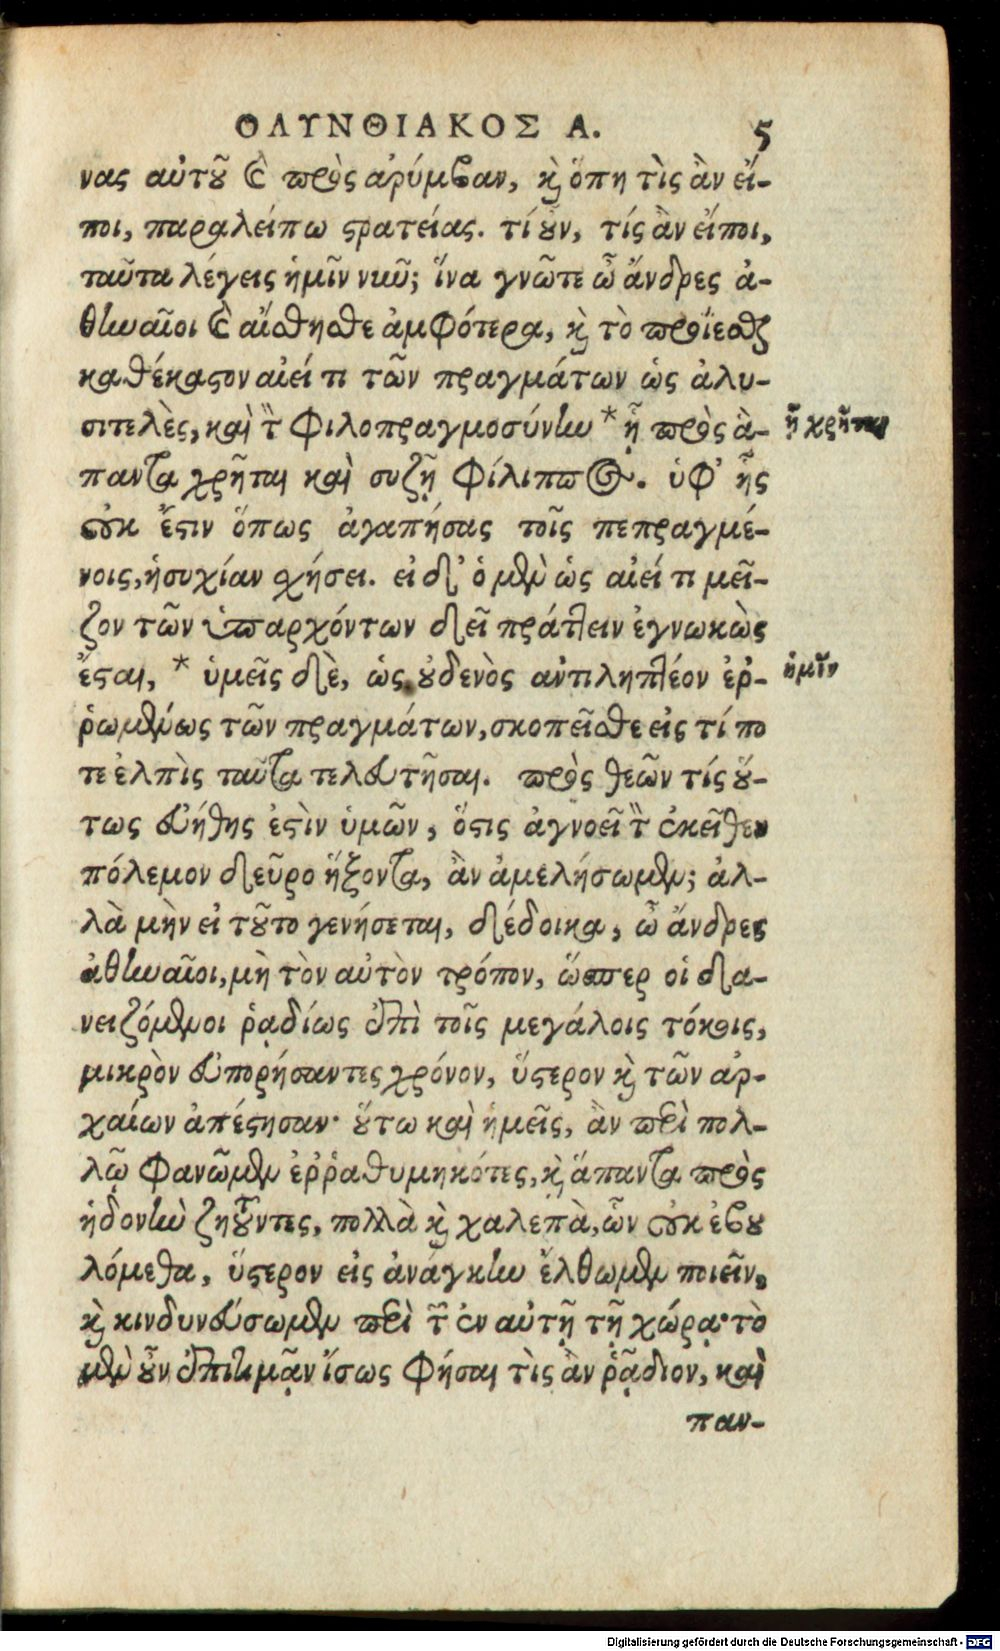 ΟΛΥΝΘΙΑΚΟΣ Α. 5
νας αὐτοῦ καὶ πρὸς ἀρύμβαν, καὶ ὅπη τὶς ἂν εἴ-
ποι, παραλείπω στρατείας. τί οὖν, τίς ἂν εἴποι,
ταῦτα λέγεις ἡμῖν νῦν; ἵνα γνῶτε ὦ ἄνδρες ἀ-
θηναῖοι καὶ αἴσθησθε ἀμφότερα, καὶ τὸ προΐεσθαι
καθέκαστον αἰεί τι τῶν πραγμάτων ὡς ἀλυ-
σιτελὲς, καὶ τὴν φιλοπραγμοσύνην * ᾗ πρὸς ἅ- ᾗ χρῆται
παντα χρῆται καὶ συζῇ Φίλιππος. ὑφ' ἧς
οὐκ ἔστιν ὅπως ἀγαπήσας τοῖς πεπραγμέ-
νοις, ἡσυχίαν σχήσει. εἰ δ' ὁ μὲν ὡς αἰεί τι μεῖ-
ζον τῶν ὑπαρχόντων δεῖ πράττειν ἐγνωκὼς
ἔσται, * ὑμεῖς δὲ, ὡς οὐδενὸς ἀντιληπτέον ἐρ- ἡμῖν
ῥωμένως τῶν πραγμάτων, σκοπεῖσθε εἰς τί πο
τε ἐλπὶς ταῦτα τελευτῆσαι. πρὸς θεῶν τίς οὕ-
τως εὐήθης ἐστὶν ὑμῶν, ὅστις ἀγνοεῖ τὸν ἐκεῖθεν
πόλεμον δεῦρο ἥξοντα, ἂν ἀμελήσωμεν; ἀλ-
λὰ μὴν εἰ τοῦτο γενήσεται, δέδοικα, ὦ ἄνδρες
ἀθηναῖοι, μὴ τὸν αὐτὸν τρόπον, ὥσπερ οἱ δα-
νειζόμενοι ῥᾳδίως ἐπὶ τοῖς μεγάλοις τόκοις,
μικρὸν εὐπορήσαντες χρόνον, ὕστερον καὶ τῶν ἀρ-
χαίων ἀπέστησαν· οὕτω καὶ ἡμεῖς, ἂν ἐπὶ πολ-
λῷ φανῶμεν ἐῤῥαθυμηκότες, καὶ ἅπαντα πρὸς
ἡδονὴν ζητοῦντες, πολλὰ καὶ χαλεπὰ, ὧν οὐκ ἐβου
λόμεθα, ὕστερον εἰς ἀνάγκην ἔλθωμεν ποιεῖν,
καὶ κινδυνεύσωμεν περὶ τῶν ἐν αὐτῇ τῇ χώρᾳ· τὸ
μὲν οὖν ἐπιτιμᾷν ἴσως φήσαι τὶς ἂν ῥᾴδιον, καὶ
παν-
Digitalisierung gefördert durch die Deutsche Forschungsgemeinschaft - DFG